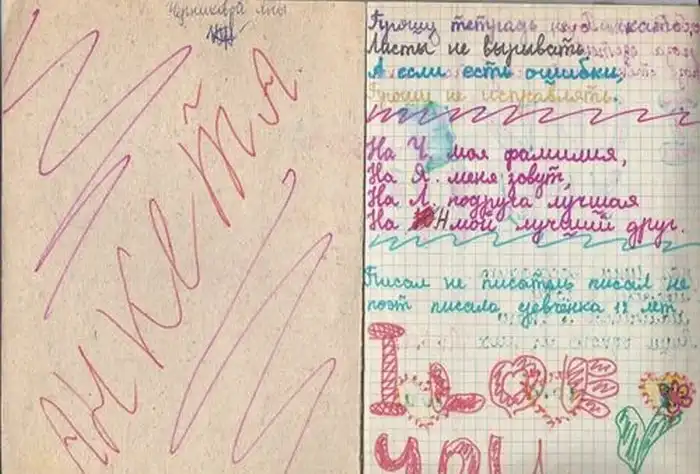 Черникова Яны
Анкета
Прошу тетрадь не
Листы не вырывать
А если есть ошибки,
Прошу не исправлять.
На Ч. моя фамилия,
На Я. меня зовут,
На Л. подруга лучшая
На Н мой лучший друг.
Писал не писатель писал не
поэт писала девчёнка 12 лет
I LOVE
YOU